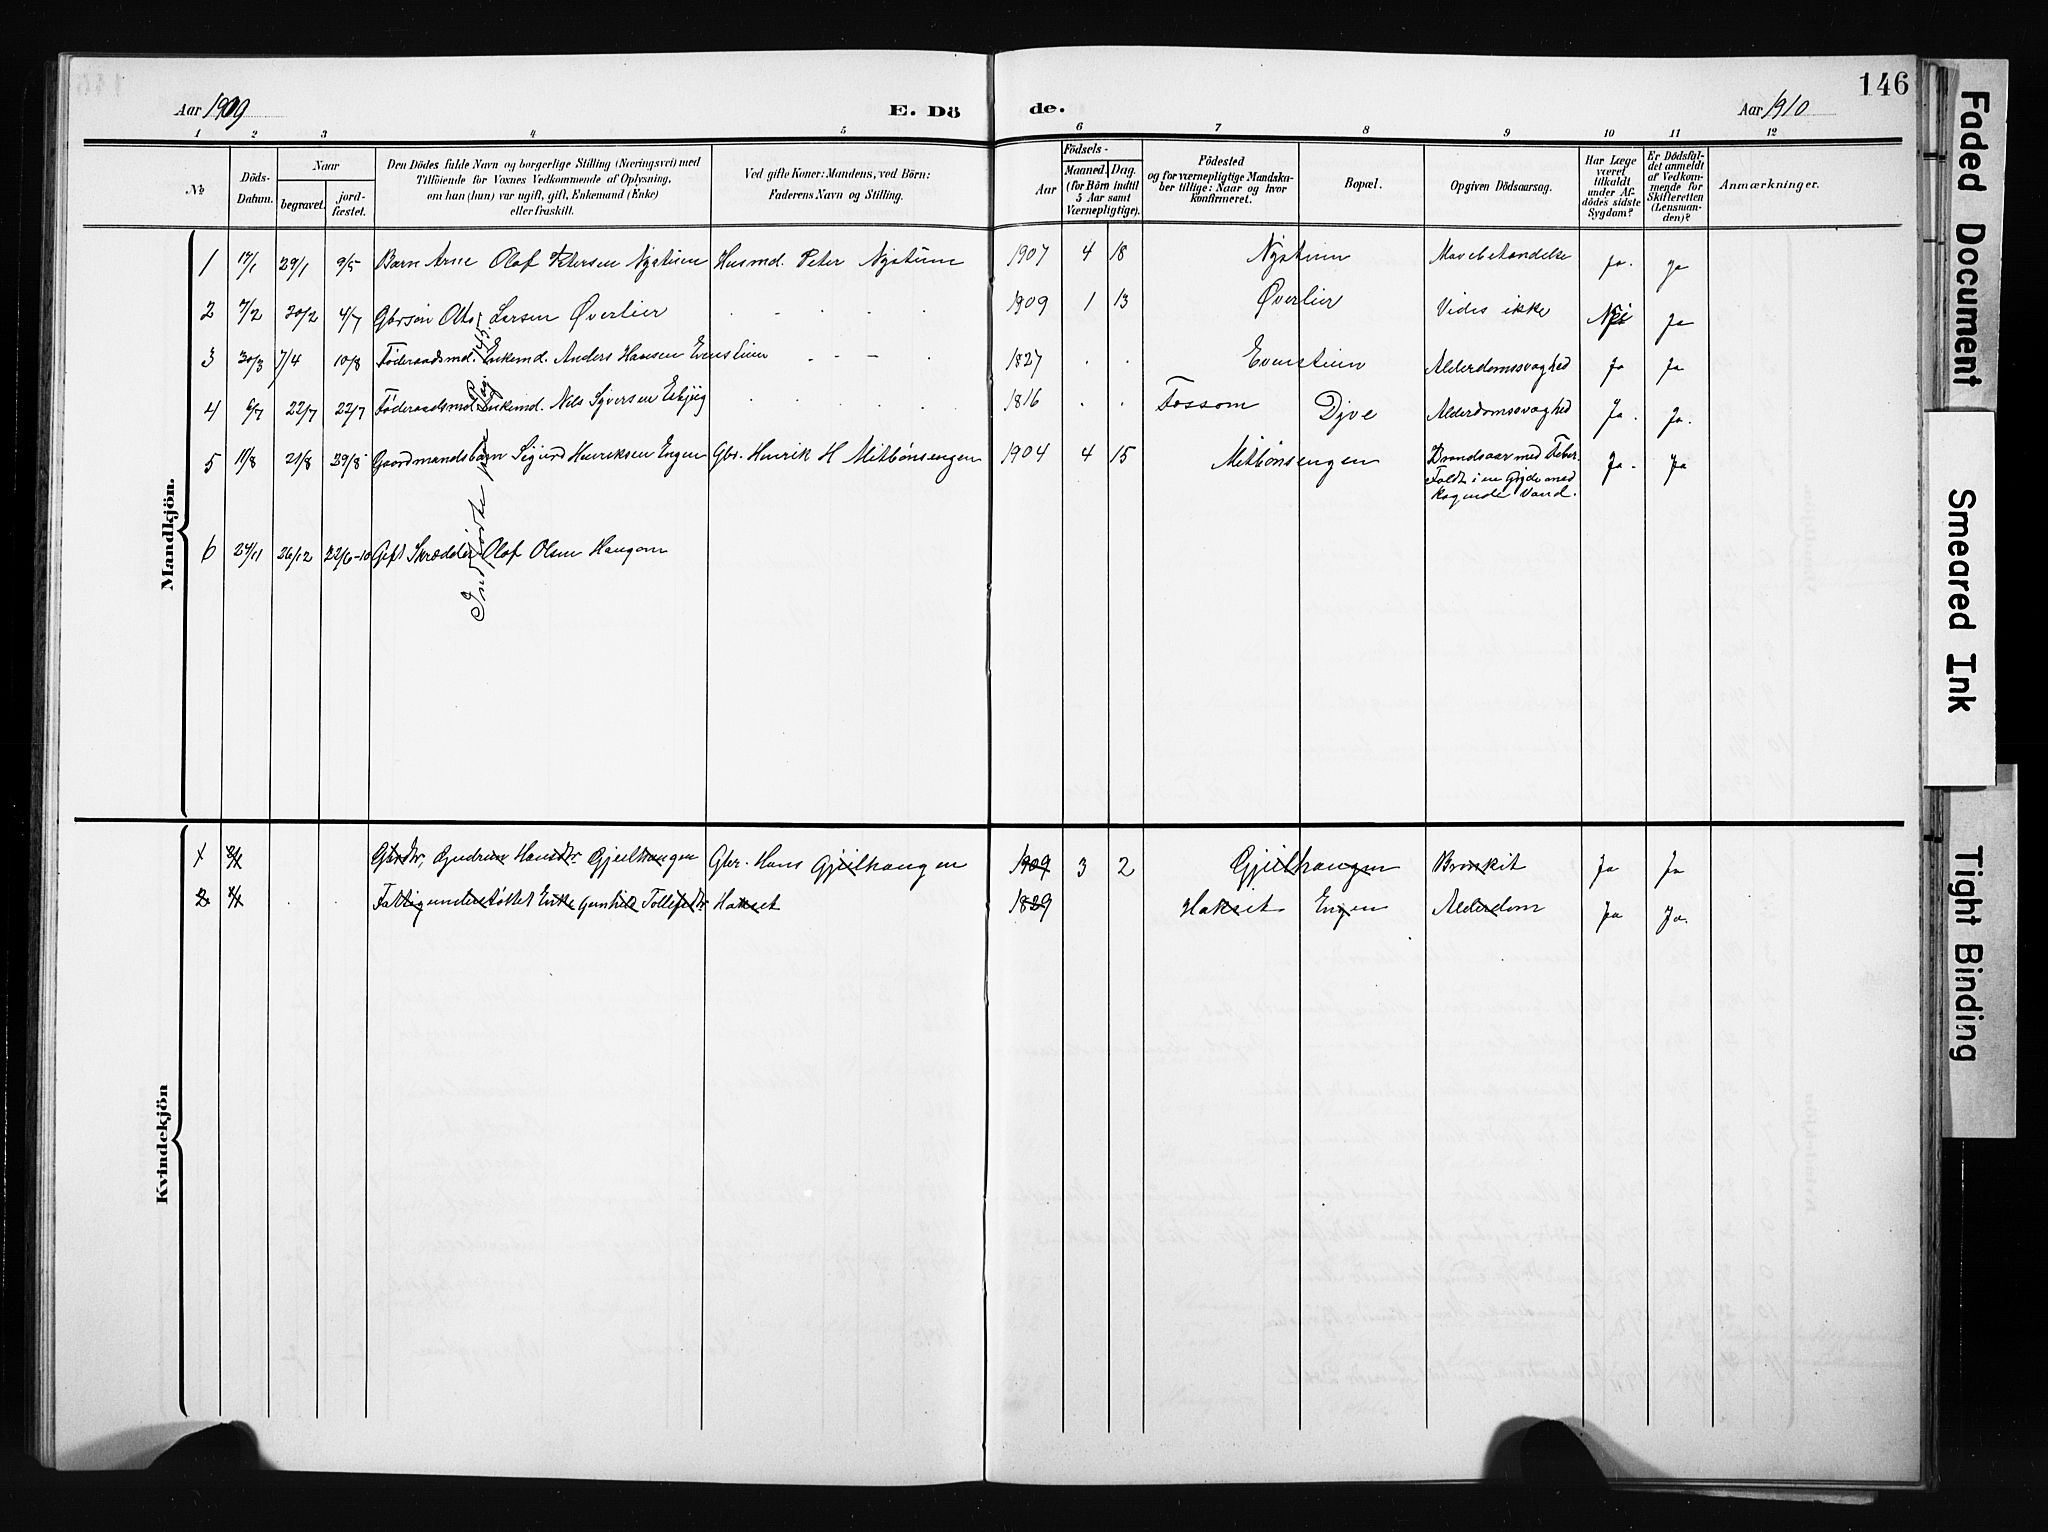 146
Aar 1909 E. Dö de. Aar 1910
1 2 3 4 5 6 7 8 9 10 11 12
№ Döds-Datum. Naar begravet. jord-fæstet. Den Dödes fulde Navn og borgerlige Stilling (Næringsvei) med Tilföiende for Voxnes Vedkommende af Oplysning, om han (hun) var ugift, gift, Enkemand (Enke) eller fraskilt. Ved gifte Koner: Mandens, ved Börn: Faderens Navn og Stilling. Födsels- Aar Maaned. Dag. (for Börn indtil 5 Aar samt Værnepligtige). Födested og for værnepligtige Mandska-ber tillige: Naar og hvor konfirmeret. Bopæl. Opgiven Dödsaarsag. Har Læge været tilkaldt under Af-dödes sidste Sygdom? Er Dödsfal-det anmeldt af Vedkom-mende for Skifteretten (Lensman-den)? Anmærkninger.
Mandkjön.
1 17/1 29/1 9/5 Barn Arne Olaf Petersen Nystuen Husmd. Peter Nystuen 1907 4 18 Nystuen Mavebetændelse Ja. Ja
2 7/2 20/2 4/7 Gbrsøn Otto Larsen Øverlier 1909 1 13 Øverlier Vides ikke Nei Ja
3 30/3 7/4 10/8 Föderaadsmd. Enkemd. Anders Hansen Evenstuen 1827 Evenstuen Alderdomssvaghed Ja Ja
4 6/7 22/7 22/7 Föderaadsmd. Enkemd. Nils Syversen 1816 Fossom Djve Alderdomssvaghed Ja. Ja.
5 11/8 21/8 29/8 Gaardmandsbarn Sigurd Henriksen Engen Gbr. Henrik H Mitbönsengen 1904 4 15 Mitbönsengen Brandsaar med Feber. Faldt i en Gryde med kogende Vand. Ja. Ja
6 24/11 26/12 22/6-10 Gift Skrædder Olaf Olsen Haugom
Indførte paa Pag. 145
Kvindekjön
1 Gbrdtr. Gudrun Hansdtr. Gjeilhaugen Gbr. Hans Gjeilhaugen 1909 3 2 Gjeilhaugen Bronkit Ja Ja
2 Fattigunderstøttet Enke Gunhild Tollefsdtr. Hakset 1829 Hakset Engen Alderdom Ja Ja.
Faded Document
Smeared Ink
Tight Binding